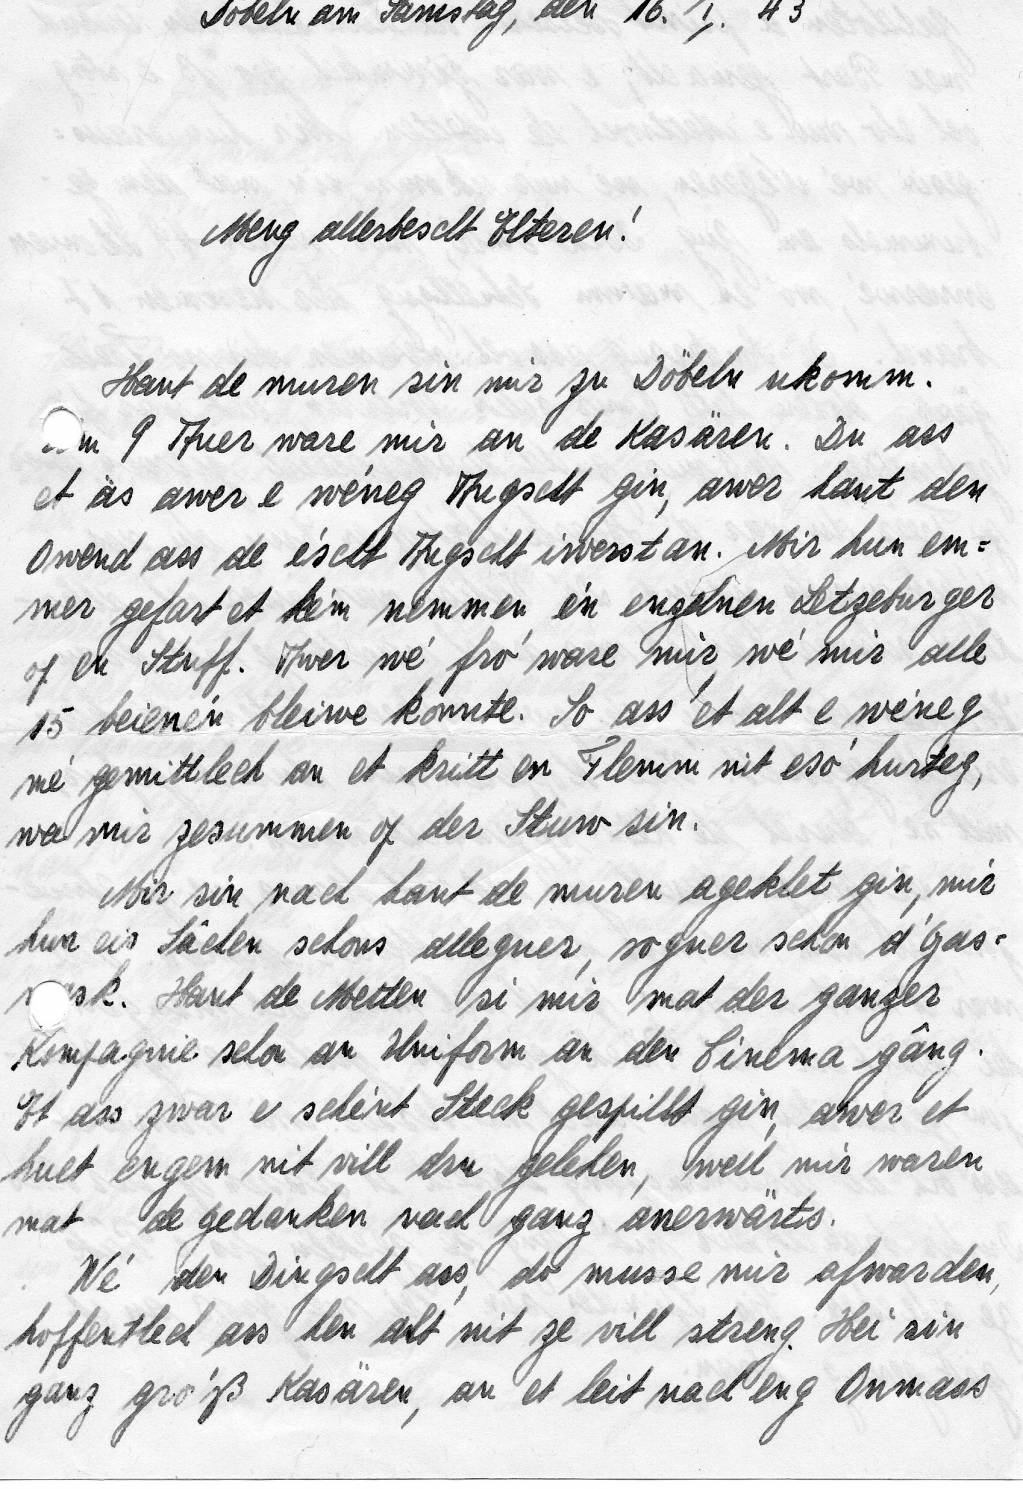 Döbeln am Samstag, den 16. I. 43
Meng allerbescht Elteren!
Haut de muren sin mir zu Döbeln ukomm.
Em 9 Auer ware mir an de Kasären. Du ass
et äs awer e wéneg Angscht gin, awer haut den
Owend ass de éscht Angscht iwerstan. Mir hun em=
mer gefart et kém nemmen én enzelnen Letzeburger
of en Stuff. Awer wé fró ware mir, wé mir alle
15 beienén bleiwe konnte. So ass et alt e wéneg
mé gemittlech an et kritt en Flemm nit esó hurteg,
wa mir zesummen of der Stuw sin.
Mir sin nach haut de muren ageklet gin, mir
hun eis Sâchen schons alleguer, soguer schon d'Gas=
mask. Haut de Metten si mir mat der ganzer
Kompagnie schon an Uniform an den Cinema gâng.
Et ass zwar e schént Steck gespillt gin, awer et
huet engem nit vill dru gelehen, well mir waren
mat de gedanken nach ganz anerwärts.
Wé den Dingscht ass, do musse mir ofwarden,
hoffentlech ass hen alt nit ze vill streng. Hei sin
ganz gróß Kasären, an et leit nach eng Onmass